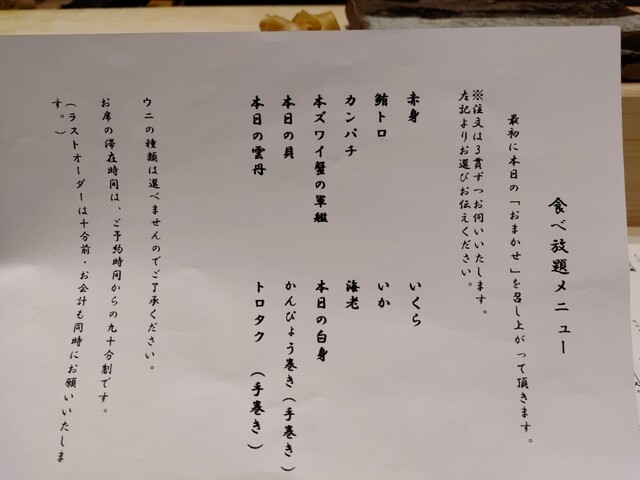 食べ放題メニュー
最初に本日の「おまかせ」を召し上がって頂きます。
※注文は3貫ずつお伺いいたします。
左記よりお選びお伝えください。
赤身
いくら
鮪トロ
いか
カンパチ
海老
本ズワイ蟹の軍艦
本日の白身
本日の貝
かんぴょう巻き(手巻き)
本日の雲丹
トロタク (手巻き)
ウニの種類は選べませんのでご了承ください。
お席の滞在時間は、ご予約時間からの九十分制です。
(ラストオーダーは十分前・お会計も同時にお願いいたしま
す。)